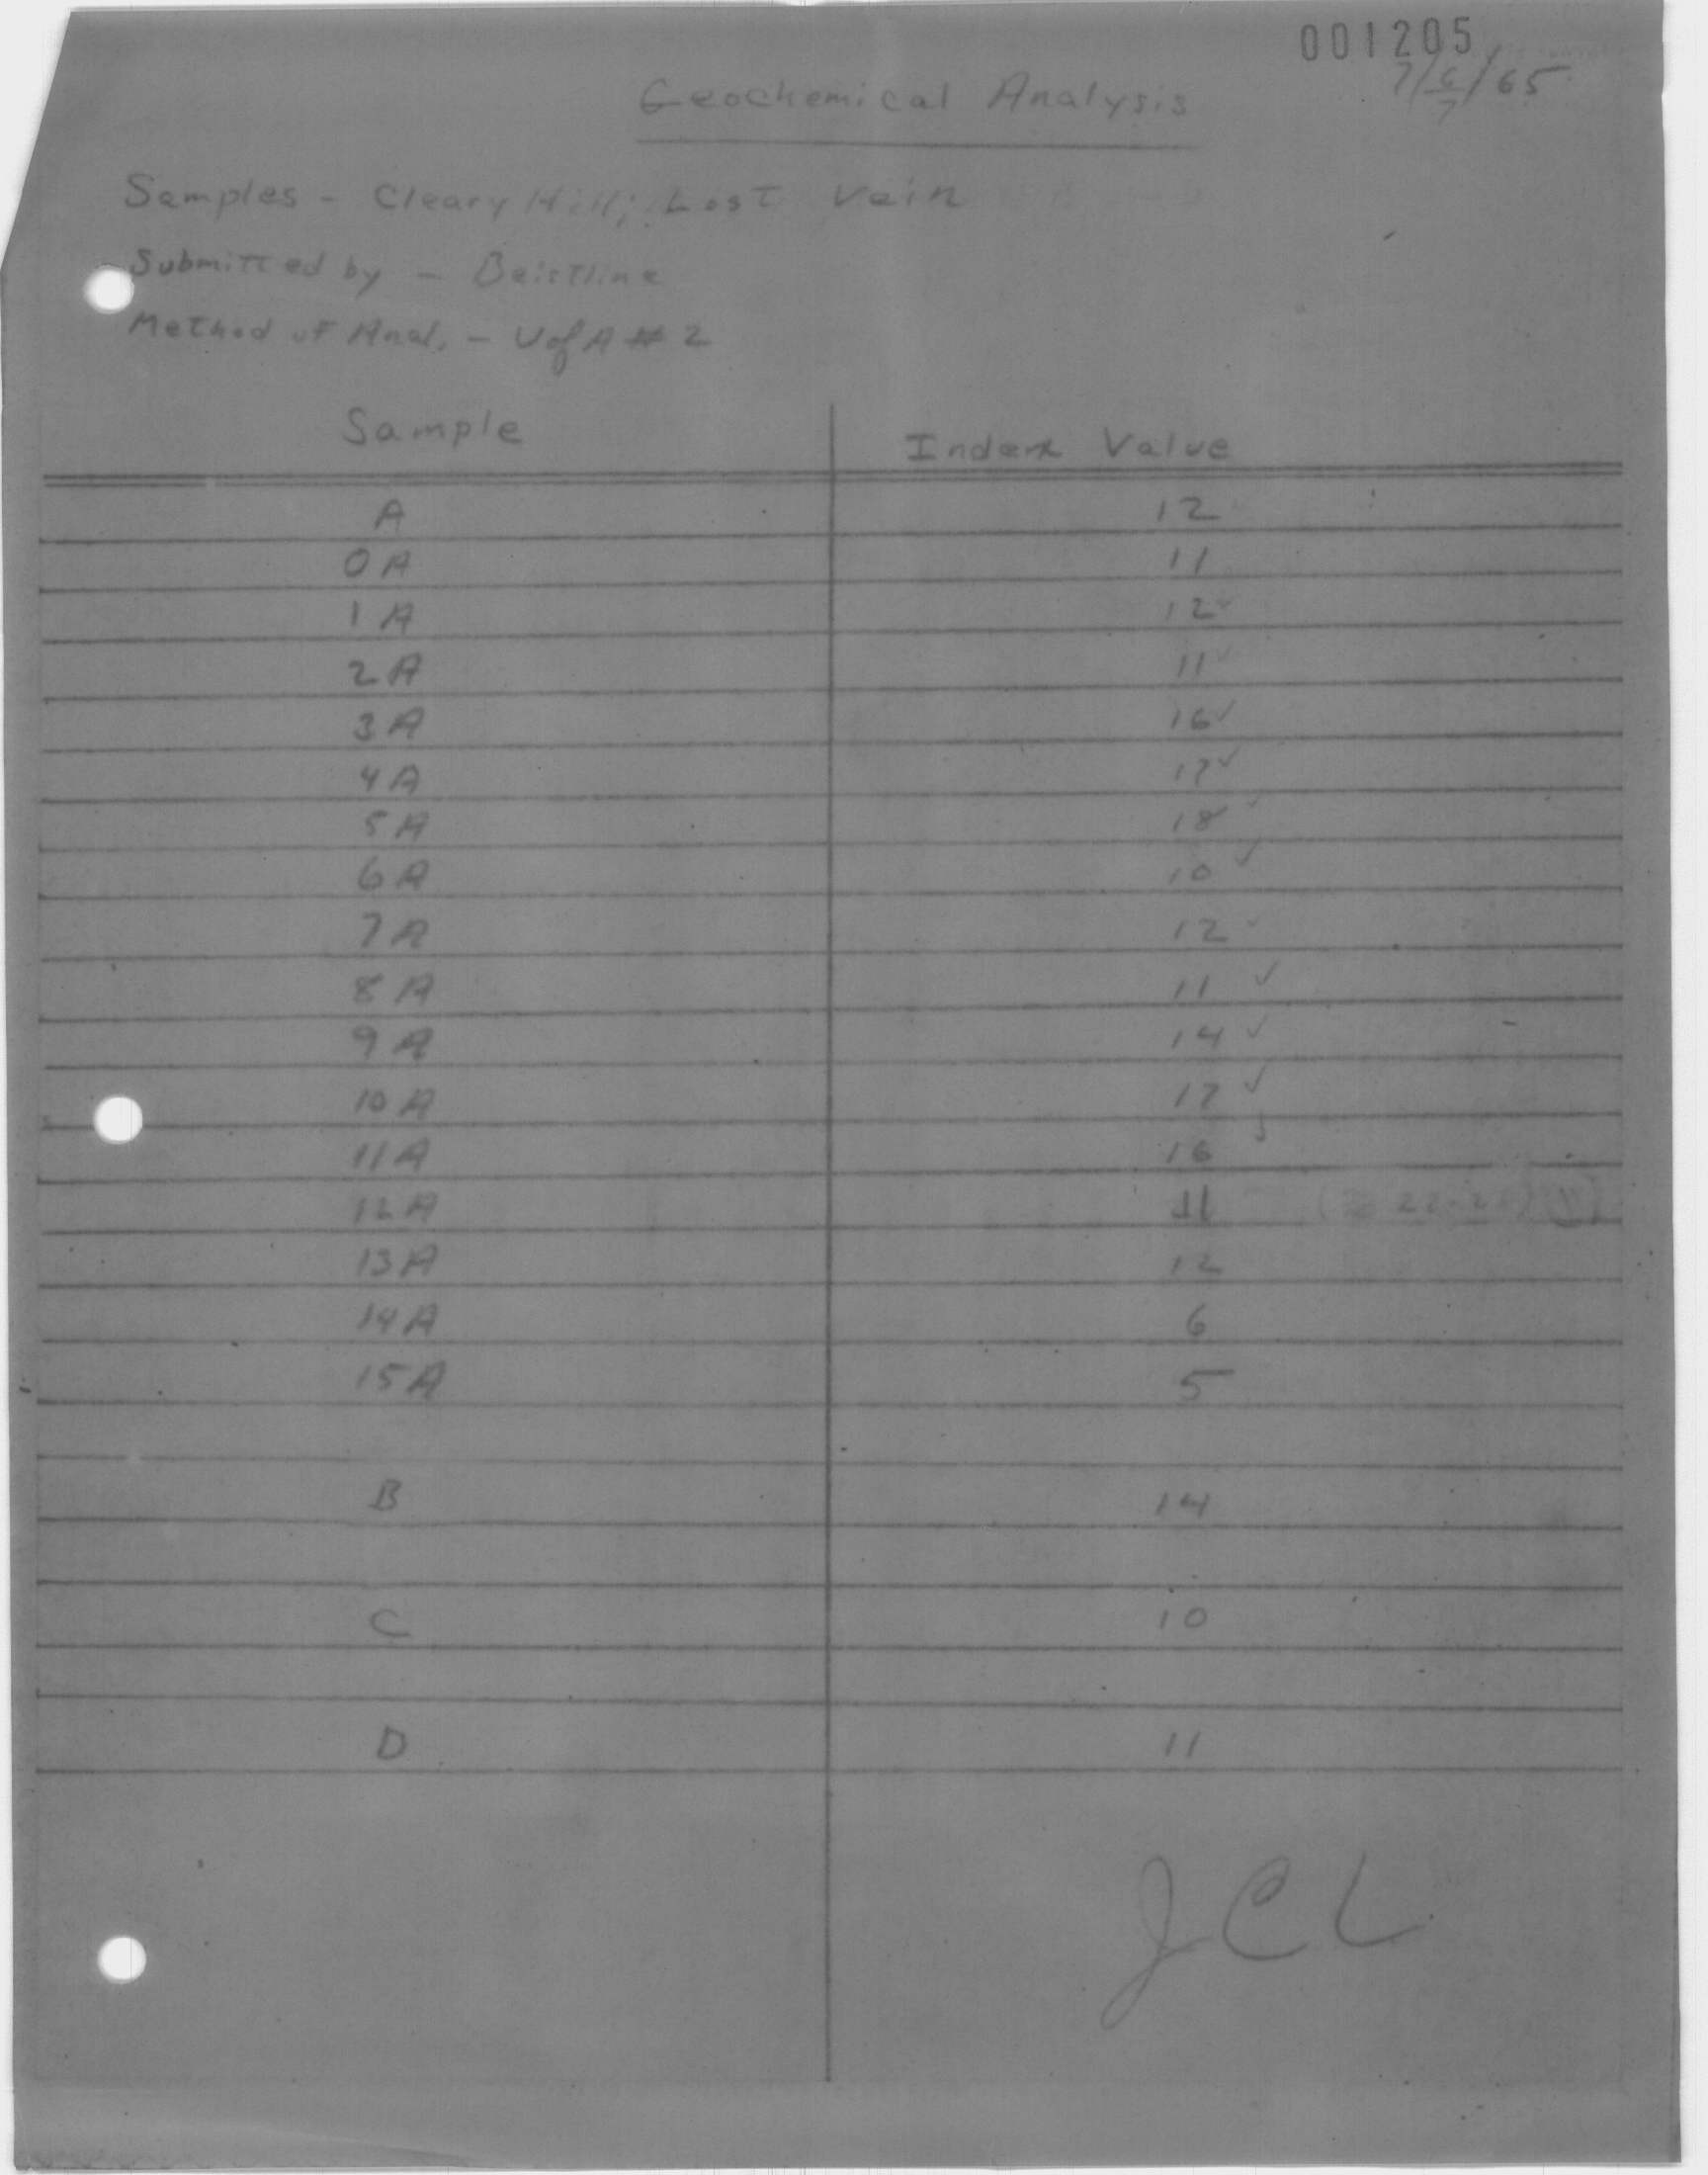 001205
7/6/65
7
Geochemical Analysis
Samples - Cleary Hill; Lost Vein
Submitted by - Beistline
Method of Anal. - U of A # 2
Sample Index Value
A 12
0A 11
1A 12 ✓
2A 11 ✓
3A 16 ✓
4A 17 ✓
5A 18 ✓
6A 10 ✓
7A 12 ✓
8A 11 ✓
9A 14 ✓
10A 17 ✓
11A 16 ✓
12A 11
13A 12
14A 6
15A 5
B 14
C 10
D 11
JCL